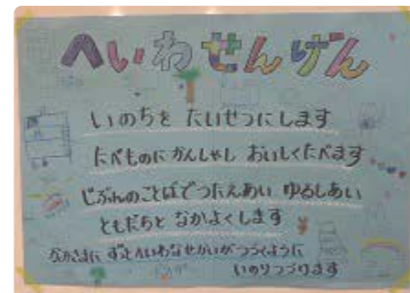 へいわせんげん
いのちを たいせつにします
たべものに かんしゃし おいしくたべます
じぶんのことばでつたえあい ゆるしあい
ともだちと なかよくします
かみさまに ずっとへいわなせかいがつづくように
いのりつづけます